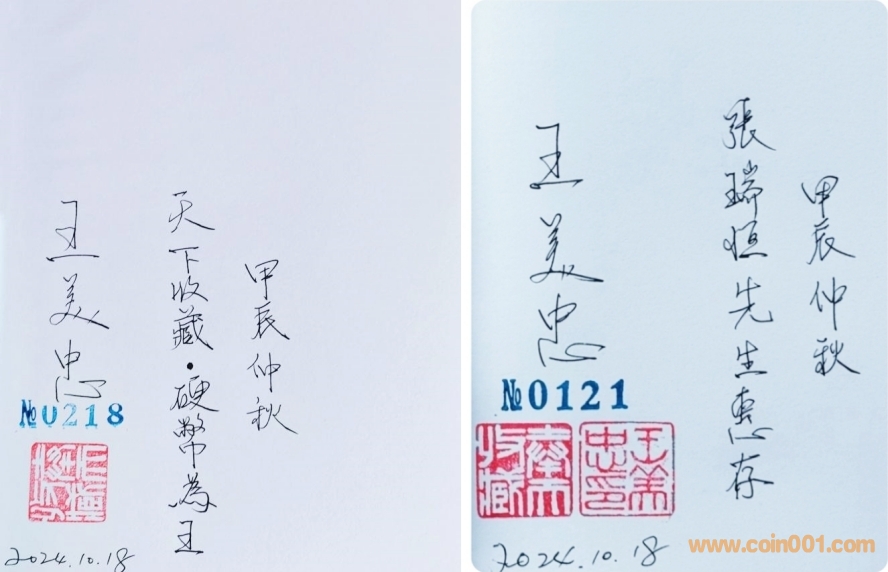 甲辰仲秋
天下收藏·硬幣為王
王美忠
№0218
2024.10.18
甲辰仲秋
張瑞恒先生惠存
王美忠
№0121
收藏
王美忠印
2024.10.18
www.coin001.com